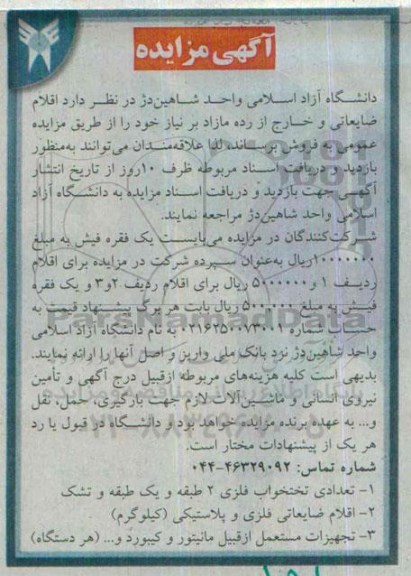 آگهی مزایده
دانشگاه آزاد اسلامی واحد شاهین‌دژ در نظر دارد اقلام
ضایعاتی و خارج از رده مازاد بر نیاز خود را از طریق مزایده
عمومی به فروش برساند، لذا علاقه‌مندان می‌توانند به‌منظور
بازدید و دریافت اسناد مربوطه ظرف ۱۰روز از تاریخ انتشار
آگهی جهت بازدید و دریافت اسناد مزایده به دانشگاه آزاد
اسلامی واحد شاهین‌دژ مراجعه نمایند.
شرکت‌کنندگان در مزایده می‌بایست یک فقره فیش به مبلغ
۱۰۰۰۰۰۰۰ریال به‌عنوان سپرده شرکت در مزایده برای اقلام
ردیف ۱ و ۵۰۰۰۰۰۰ ریال برای اقلام ردیف ۲و۳ و یک فقره
فیش به مبلغ ۵۰۰۰۰۰ ریال بابت برگ پیشنهاد قیمت به
حساب شماره به نام دانشگاه آزاد اسلامی
واحد شاهین‌دژ نزد بانک ملی واریز و اصل آنها را ارائه نمایند.
بدیهی است کلیه هزینه‌های مربوطه ازقبیل درج آگهی و تأمین
نیروی انسانی و ماشین‌آلات لازم جهت بارگیری، حمل، نقل
و... به عهده برنده مزایده خواهد بود و دانشگاه در قبول یا رد
هر یک از پیشنهادات مختار است.
شماره تماس: ۴۶۳۲۹۰۹۲-۰۴۴
۱- تعدادی تختخواب فلزی ۲ طبقه و یک طبقه و تشک
۲- اقلام ضایعاتی فلزی و پلاستیکی (کیلوگرم)
۳- تجهیزات مستعمل ازقبیل مانیتور و کیبورد و... (هر دستگاه)
ParsNamadData